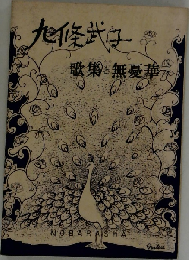 九條武子
歌集と無憂華
NOBARASHA